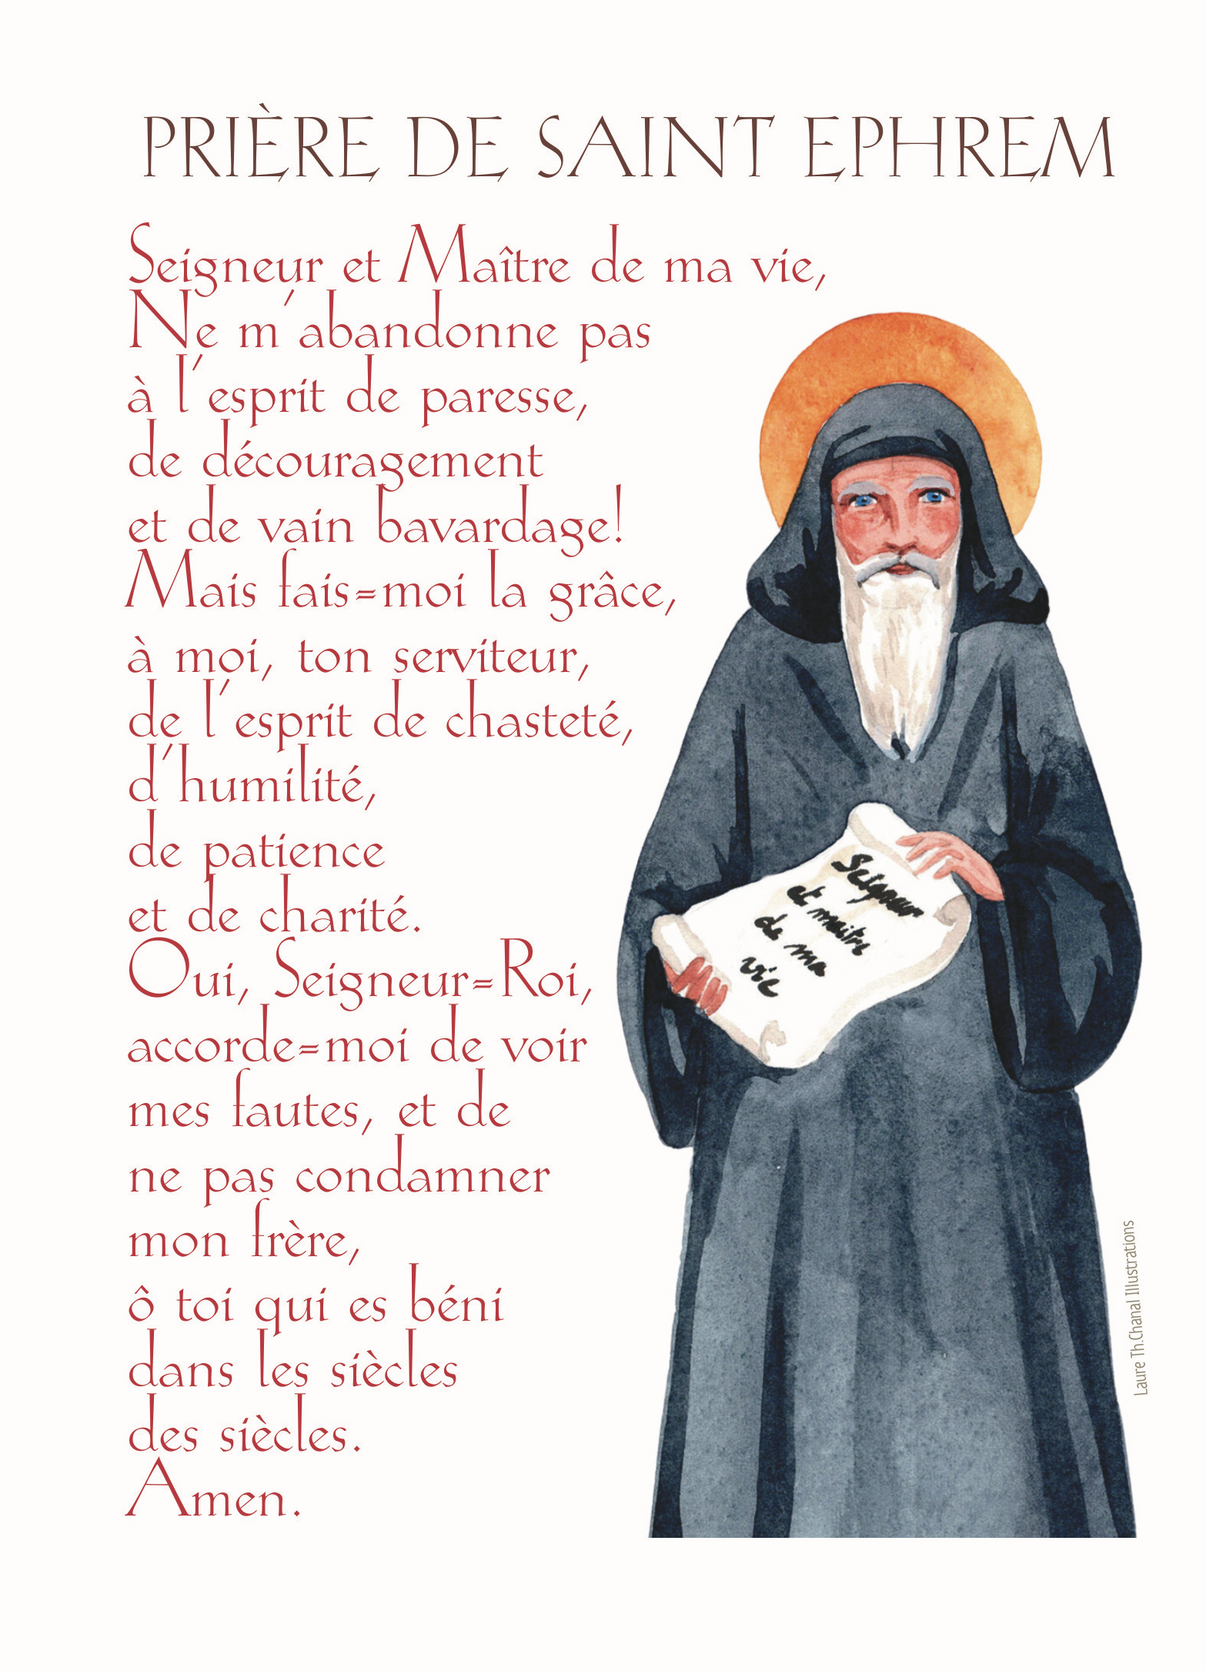 PRIÈRE DE SAINT EPHREM
Seigneur et Maître de ma vie,
Ne m'abandonne pas
à l'esprit de paresse,
de découragement
et de vain bavardage!
Mais fais-moi la grâce,
à moi, ton serviteur,
de l'esprit de chasteté,
d'humilité,
de patience
et de charité.
Oui, Seigneur-Roi,
accorde-moi de voir
mes fautes, et de
ne pas condamner
mon frère,
ô toi qui es béni
dans les siècles
des siècles.
Amen.
Seigneur
et maitre
de ma
vie
Laure Th.Chanal Illustrations